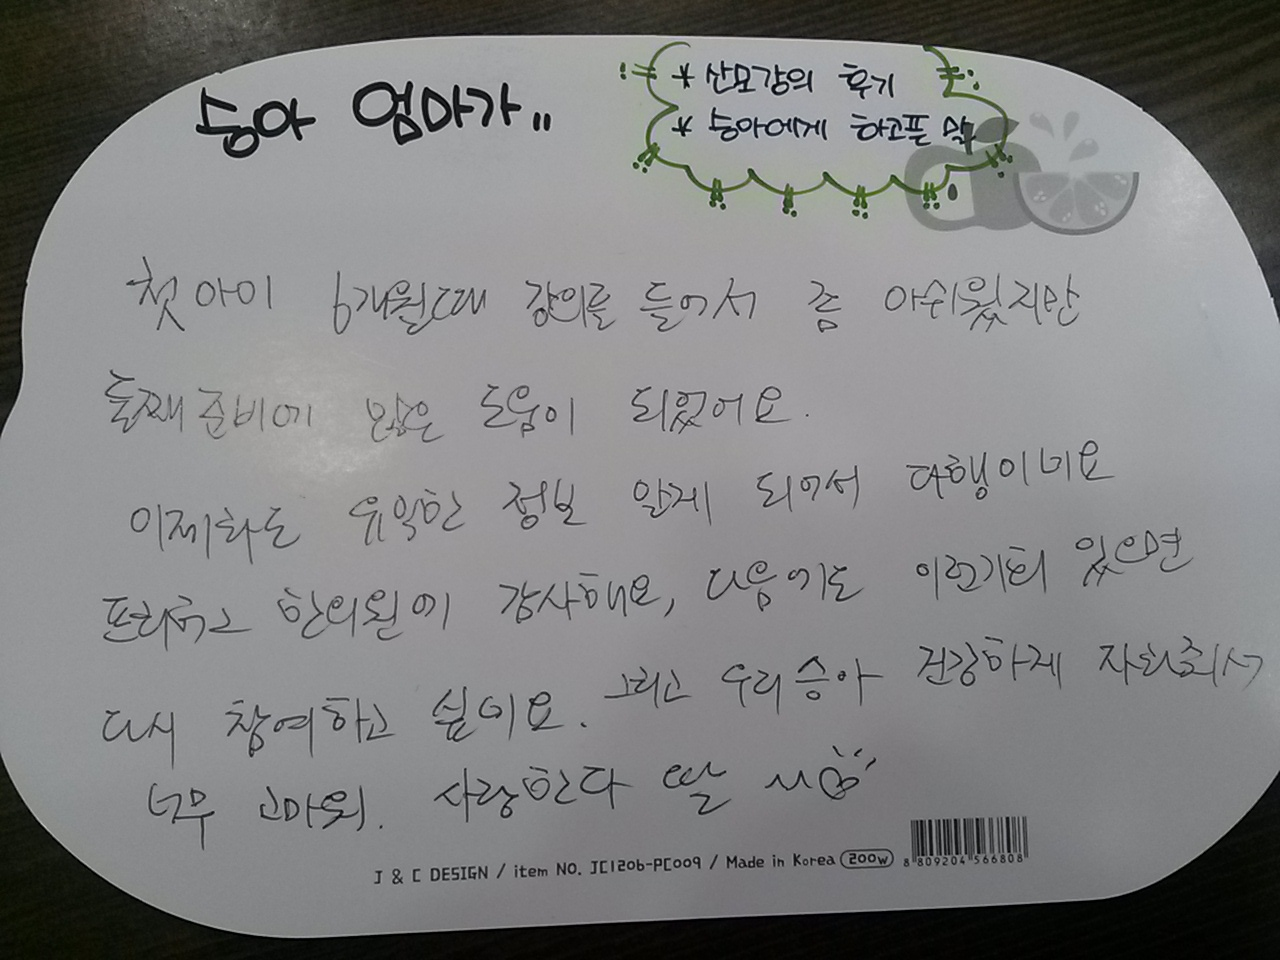 승아 엄마가..
* 산모강의 후기
* 승아에게 하고픈 말
첫아이 6개월때 강의를 들어서 좀 아쉬웠지만
둘째준비에 많은 도움이 되었어요.
이제라도 유익한 정보 알게 되어서 다행이네요
한의원에 감사해요, 다음에도 이런기회 있으면
다시 참여하고 싶어요. 그리고 우리승아 건강하게 자라줘서
너무 고마워. 사랑한다 딸
J & C DESIGN / item NO. JC1206-PC009 / Made in Korea 200w
8 809204 566808